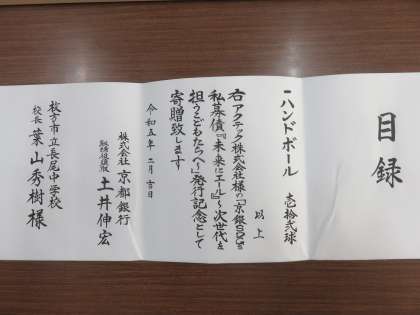 目録
一ハンドボール 壱拾弐球
以上
右アクテック株式会社様の「京銀SDGs
私募債『未来にエール』～次世代を
担う子どもたちへ」発行記念として
寄贈致します
令和五年二月吉日
株式会社京都銀行
取締役頭取 土井伸宏
枚方市立長尾中学校
校長 葉山秀樹様